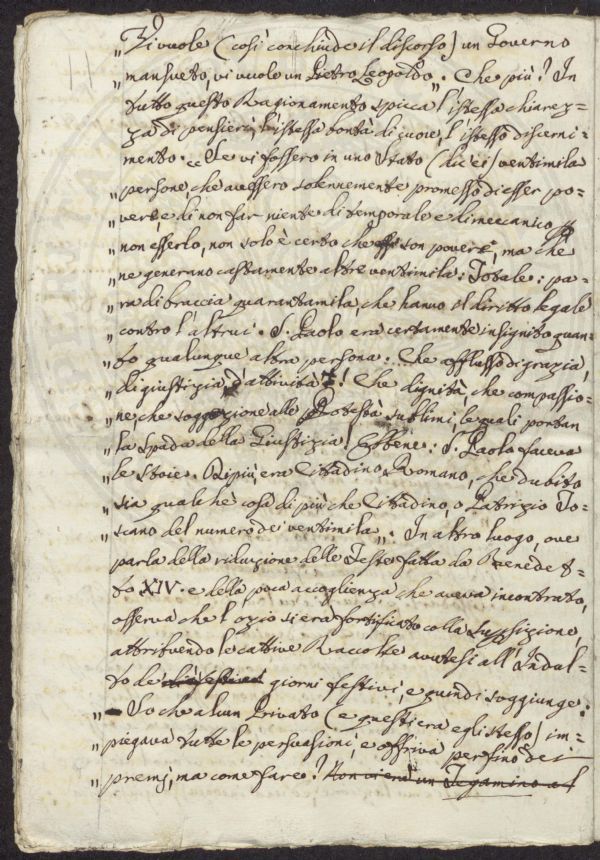 „ Vi vuole (così conchiude il discorso) un Governo
„ mansueto, vi vuole un Pietro Leopoldo„. Che più? In
tutto questo Ragionamento spicca l'istessa chiarez=
za di pensieri, l'istessa bontà di cuore, l'istesso discerni=
mento. „ Se vi fossero in uno Stato (dic'ei) ventimila
„ persone che avessero solennemente promesso d'esser po=
„ vere, e di non far niente di temporale e di meccanico
„ non esserlo, non solo è certo che son povere, ma che
„ ne generano castamente altre ventimila: Totale: pa=
„ ra di braccia quarantamila, che hanno il diritto legale
„ contro l'altrui. S. Paolo era certamente insignito quan=
„ to qualunque altra persona. Che afflusso di grazia,
„ di giustizia, d'attività! Che dignità, che compassio=
„ ne, che soggezione alle Potestà sublimi, le quali portan
„ la spada della Giustizia! Ebbene: S. Paolo faceva
„ le stoie. Di più era Cittadino Romano, che dubito
„ sia qualche cosa di più che Cittadino, o Patrizio To=
„ scano del numero dei ventimila„. In altro luogo, ove
parla della riduzione delle Feste fatta da Benedet=
to XIV. e della poca accoglienza che aveva incontrato,
osserva che l'ozio si era fortificato colla superstizione,
attribuendo le cattive Raccolte avutesi all'Indul=
to de' giorni festivi, e quindi soggiunge:
„ So che alcun Privato (e questi era egli stesso) im=
„ piegava tutte le persuasioni, e offriva perfino dei
„ premj, ma come fare? Non viene un Tegamino al